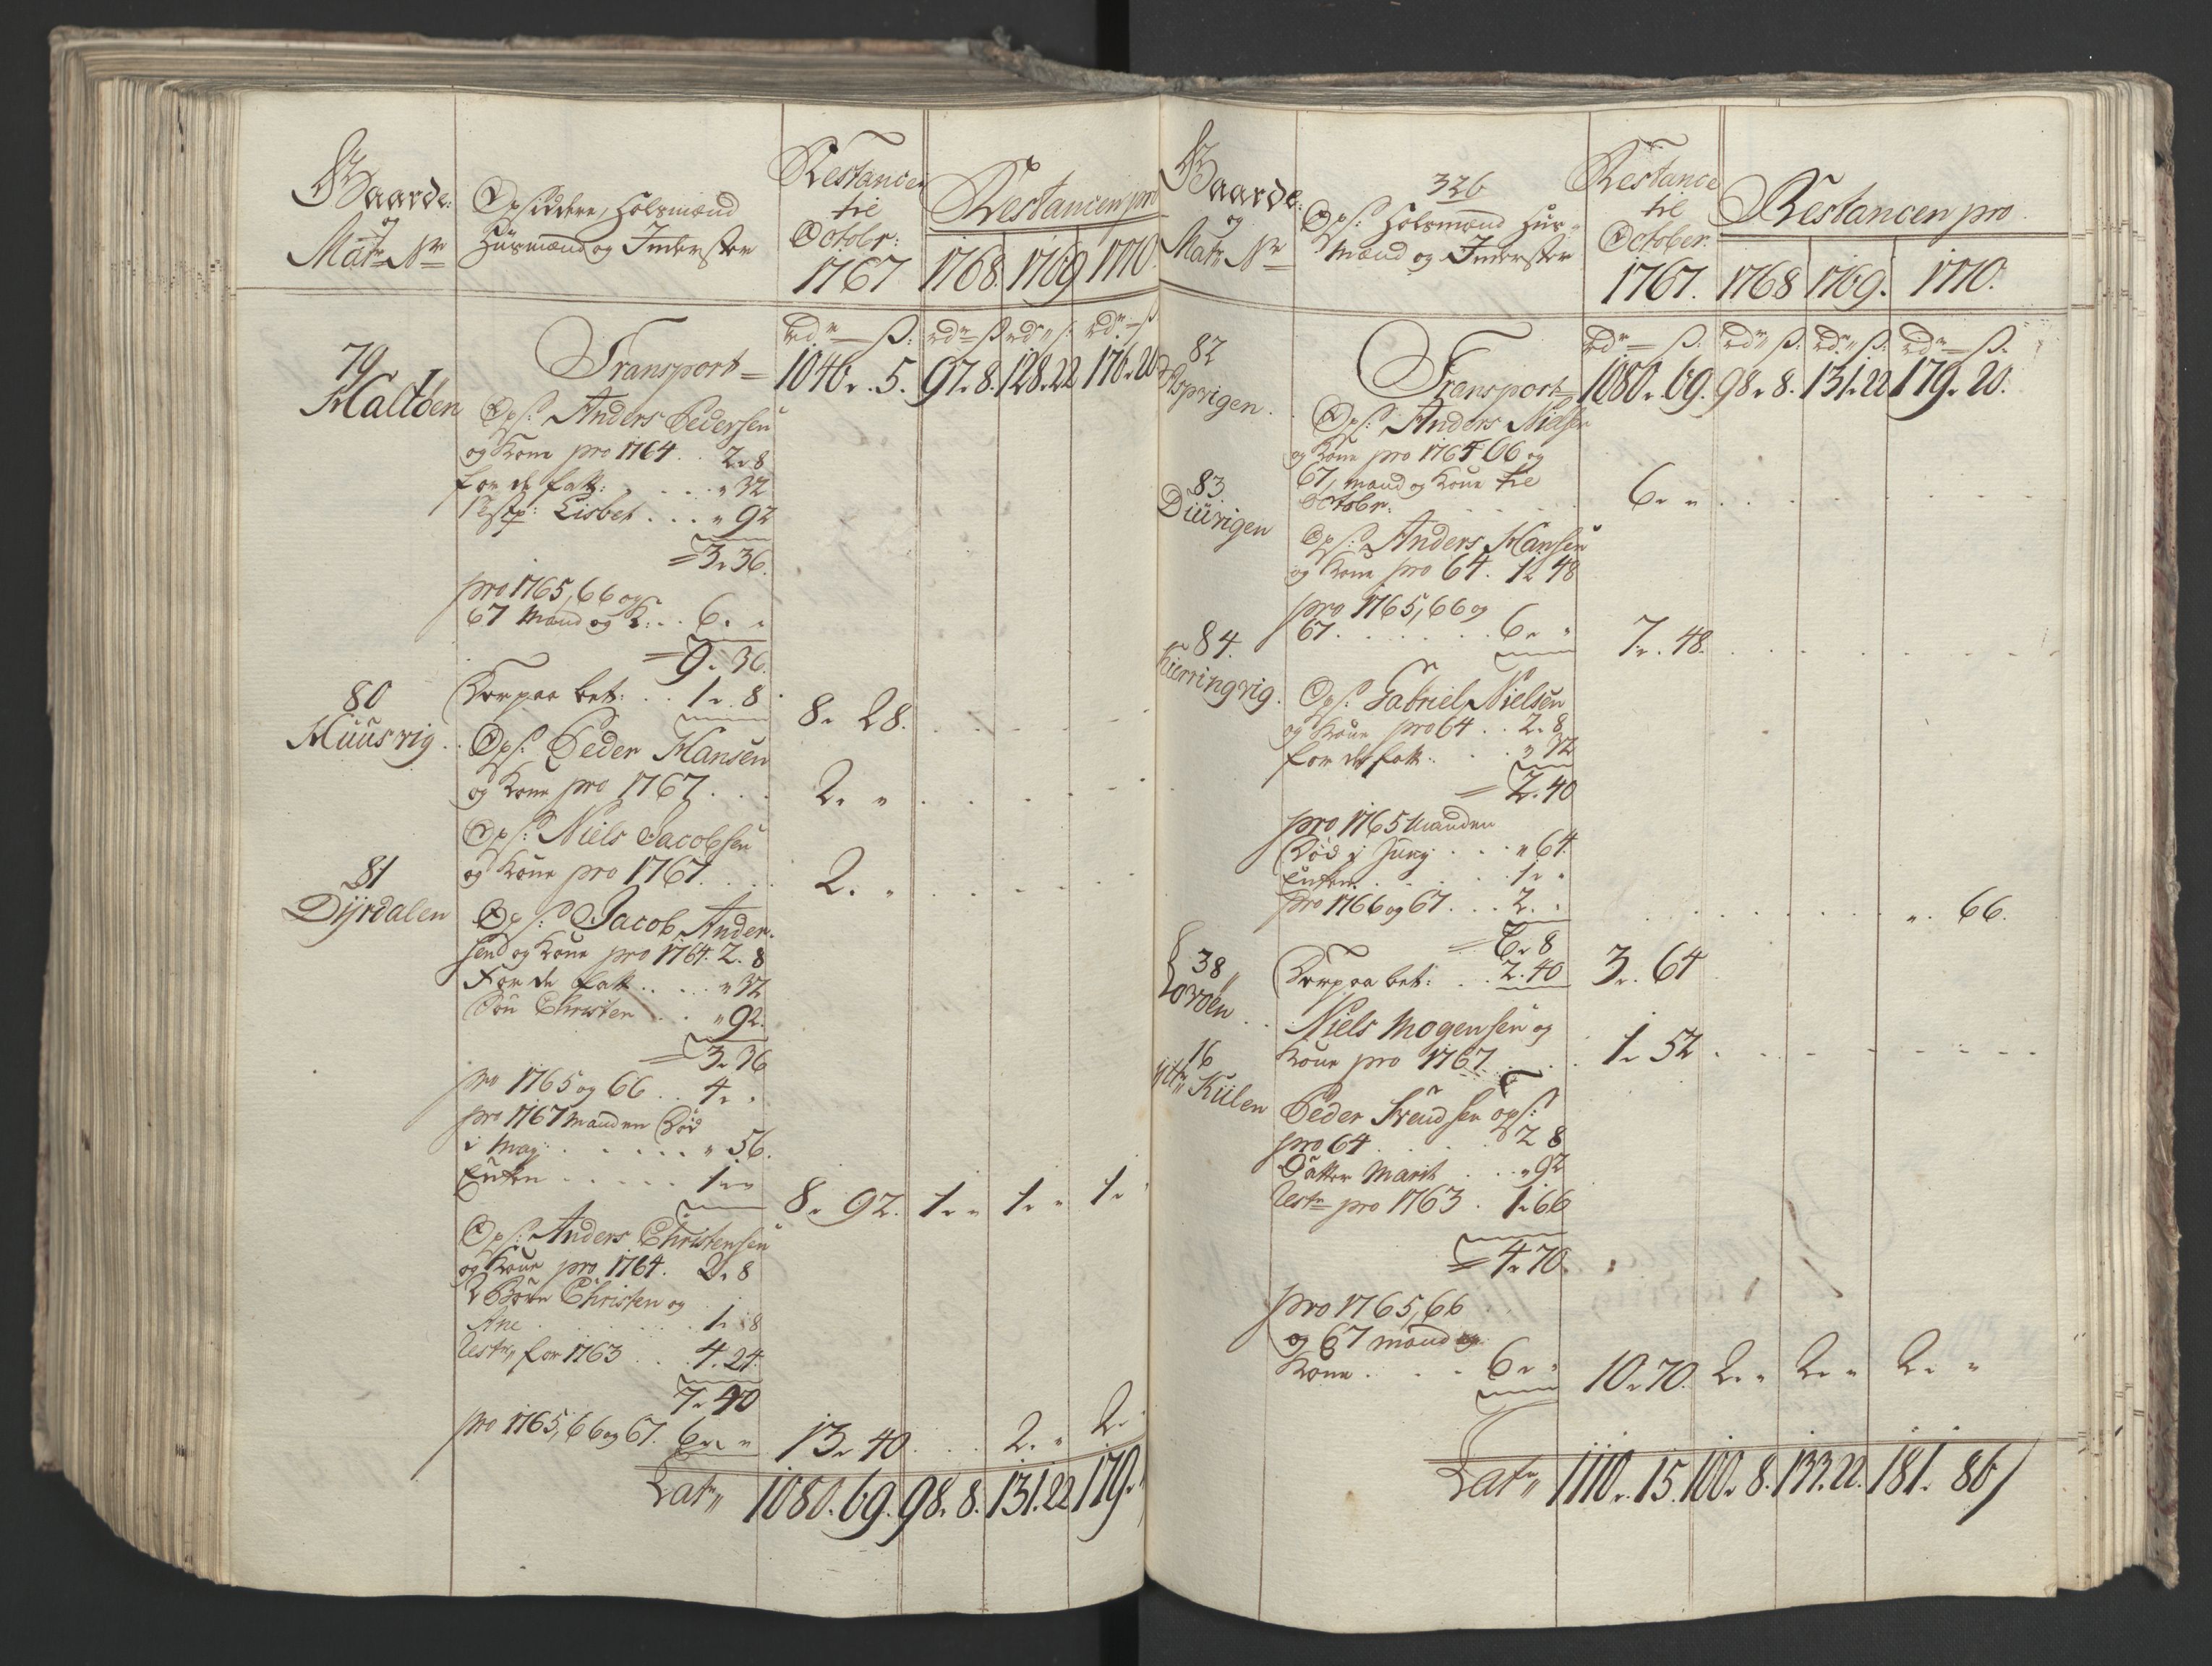 Gaarde:
og
Matr Nr
Opsiddere, Holsmænd
Huusmænd og Inderster
Restancer
til
Octobr:
1767
Restancen pro
1768. 1769 1770.
rdr ß: rdr ß rdr ß: rdr ß
79
Maltøen
Transport 1046. 5. 97. 8. 128. 22 176. 20
Ops: Anders Pedersen
og Kone pro 1764 . . 2. 8
for de fatt: . . . . . „ 32
Lisbet . . . „ 92
= 3. 36.
pro 1765, 66 og
67 Mand og K: . . 6. „
= 9. 36.
Herpaa bet: . . 1. 8 8. 28.
80
Muusvig . .
Ops: Peder Hansen
og Kone pro 1767 . . . 2. „
Ops: Niels Jacobsen
og Kone pro 1767. . . . 2. „
81
Dyrdalen
Ops: Jacob Ander-
sen og Kone pro 1764. 2. 8
For de fatt . . . . „ 32
Søn Christen . . „ 92.
= 3. 36
pro 1765 og 66 . . 4. „
pro 1767 Manden Død
i Maj . . . . . . „ 56.
Enken . . . . . 1. „ 8. 92. 1. „ 1. „ 1. „
Ops: Anders Christensen
og Kone pro 1764. 2. 8
2 Børn Christen og
Ane . . . . . . . 1. 88
Restr: for 1763 . . . 4. 24.
7. 40
pro 1765, 66 og 67. 6. „ 13. 40. . . . 2. „ 2.
Latr„ 1080. 69. 98. 8. 131. 22 179.
Gaarde:
og
Matr Nr
326
Ops: Holsmænd Huus-
Mænd og Inderster
Restance
til
October.
1767.
Restancen pro
1768 1769. 1770.
rdr ß: rdr ß: rdr ß: rdr ß.
82
Aspvigen .
Transport 1080. 69. 98. 8. 131. 22 179. 20.
Ops: Anders Nielsen
og Kone pro 1765 66 og
67, Mand og Kone til
October. 6. „
83.
Duuvigen
Ops: Anders Hansen
og Kone pro 64. 1. 48
pro 1765, 66 og
67. . . . . . . 6. „ 7. 48.
84.
Kierringvig.
Ops: Gabriel Nielsen
og Kone pro 64 . . 2. 8
for de fatt . . . . „ 32
= 2. 40
pro 1765 Manden
Død i Junij . . . „ 64.
Enken . . . . . . 1. „
pro 1766 og 67. . . 2. „ „ 66.
= 6. 8
Herpaa bet: . . 2. 40 3. 64
38„
Lovøen . .
Niels Mogensen og
Kone pro 1767 . . . 1. 52
16
Kiilen
Peder Svendsen ops:
pro 64 . . . . . . 2 8
Datter Marit . . . „ 92
Restr pro 1763 . 1. 66
= 4. 70.
pro 1765, 66
og 67 mand og
Kone . . . . 6. „ 10. 70. 2. „ 2. „ 2. „
Latr„ 1110. 15. 100. 8. 133. 22. 181. 86